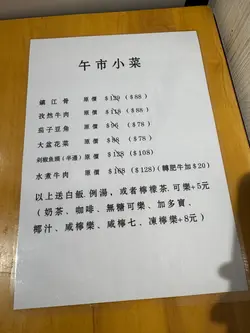 午市小菜
鎮江骨 原價 $120 ($88)
孜然牛肉 原價 $118 ($88)
茄子豆角 原價 $96 ($78)
大盆花菜 原價 $88 ($78)
剁椒魚頭(半邊) 原價 $128 ($108)
水煮牛肉 原價 $168 ($128)(轉肥牛加$20)
以上送白飯.例湯，或者檸檬茶.可樂+5元
(奶茶、咖啡、無糖可樂、加多寶、
椰汁、咸檸樂、咸檸七、凍檸樂+8元)